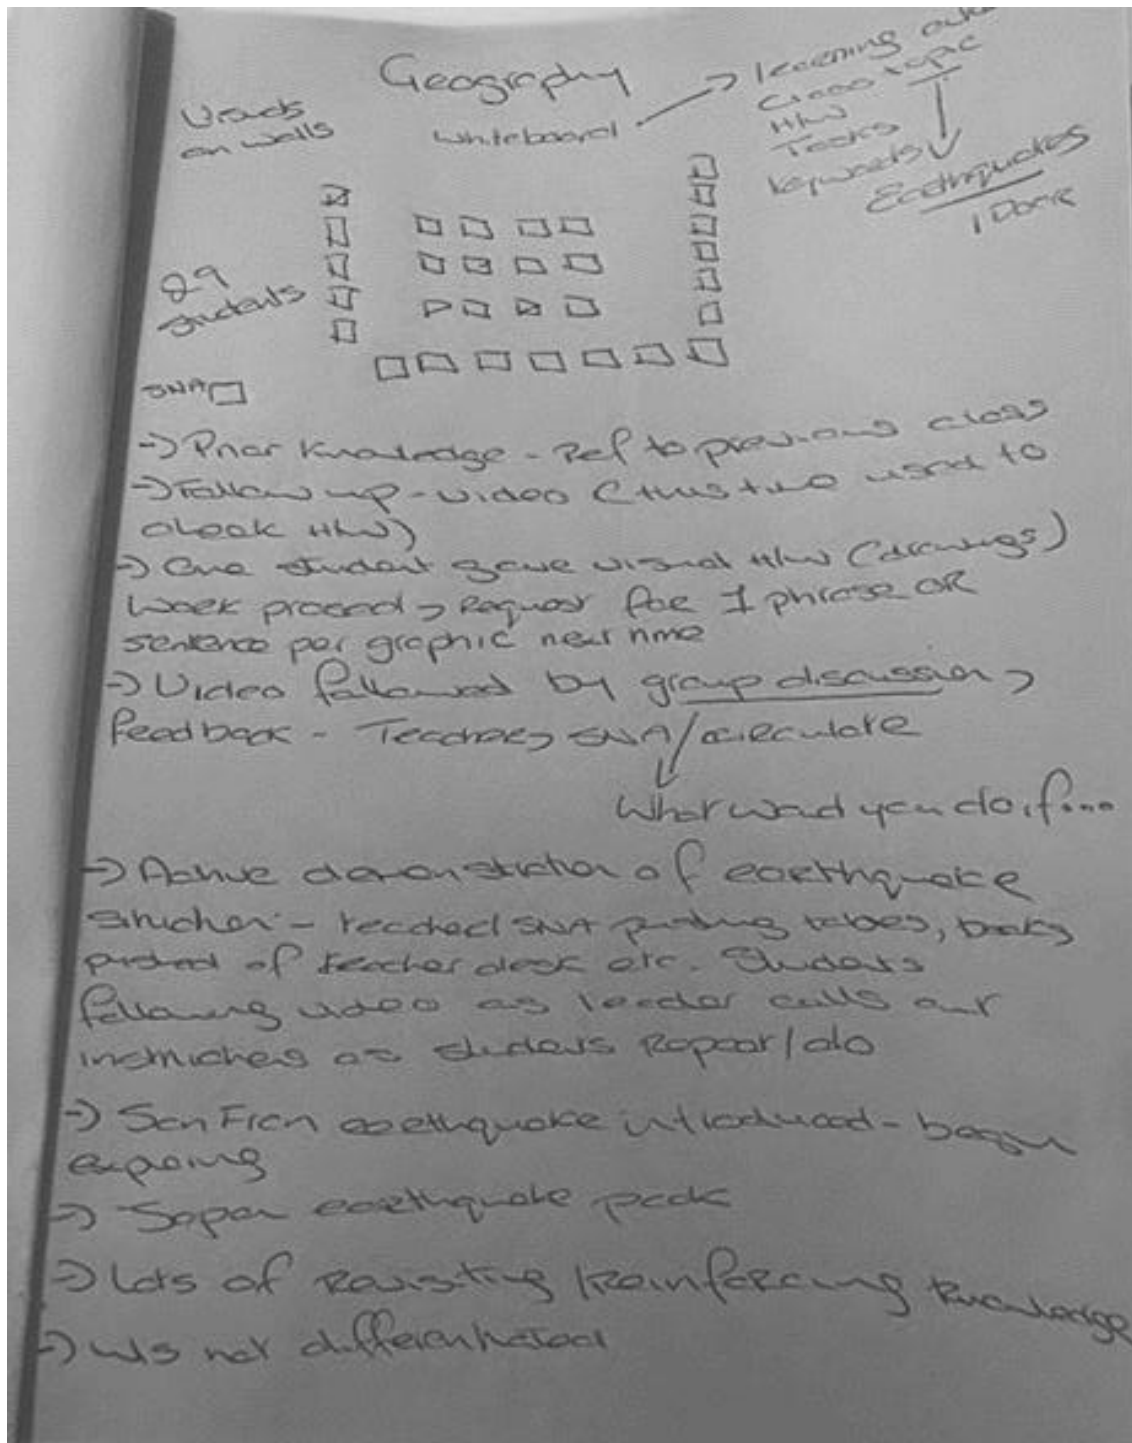 Geography
Visuals
on walls
Whiteboard
learning
Class topic
H/W
Tasks
Keywords
Earthquakes
1 Door
29
students
SNA
-> Prior Knowledge - Ref to previous class
-> Follow up - video (this time used to
check H/W)
-> One student gave visual H/W (drawings)
Week -> Request for 1 phrase OR
sentence per graphic next time
-> Video followed by group discussion ->
feedback - Teacher SNA/circulate
What would you do if...
-> Active demonstration of earthquake
situation - SNA tables, books
pushed of teacher desk etc. Students
following video as leader calls out
instructions as students Repeat/do
-> San Fran earthquake introduced - begin
-> Japan earthquake pack
-> Lots of Revisiting/Reinforcing Knowledge
-> W/S not differentiated